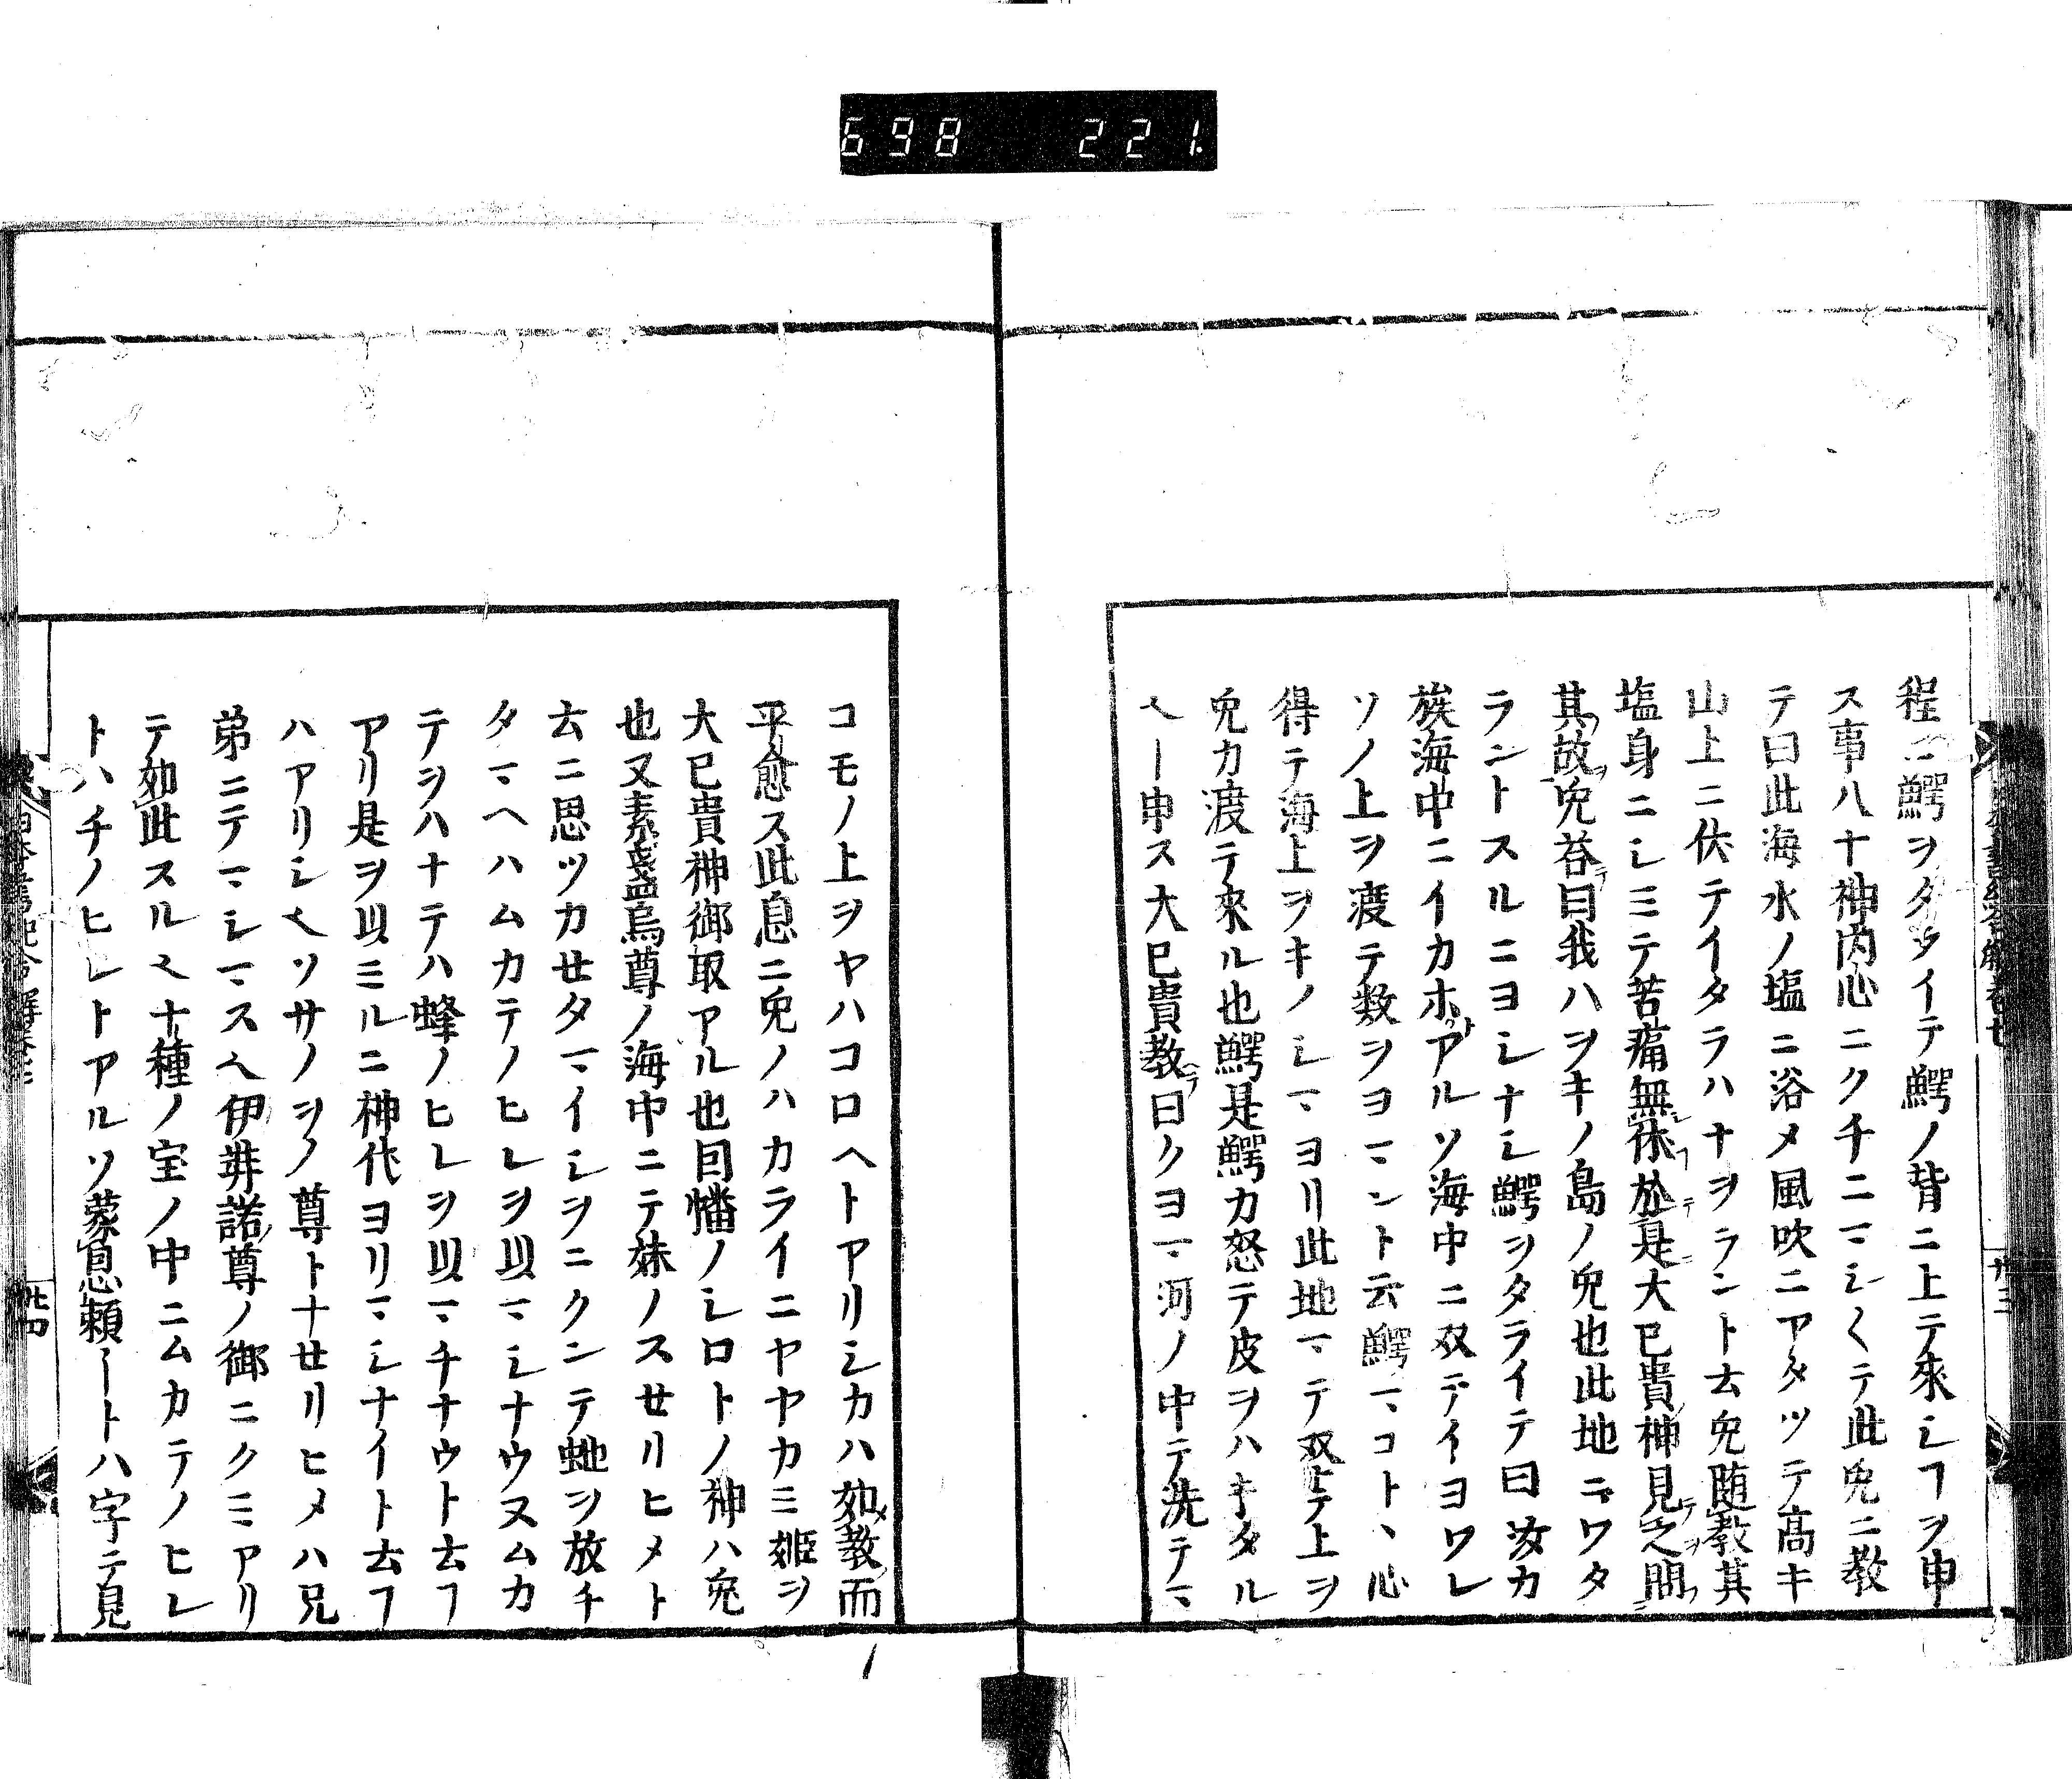 698 221.
程ニ鰐ヲタタイテ鰐ノ背ニ上テ來シヿヲ申
ス事八十神内心ニクチニマシ〱テ此兎ニ教
テ曰此海水ノ塩ニ浴メ風吹ニアタツテ高キ
山上ニ伏テイタラハナヲラント去兎随教其
塩身ニシミテ苦痛無休於是大巳貴神見之問
其故兎荅曰我ハヲキノ島ノ兎也此地ニワタ
ラントスルニヨシナシ鰐ヲタライテ曰汝カ
族海中ニイカホトアルソ海中ニ双テイヨワレ
ソノ上ヲ渡テ数ヲヨマント云鰐マコトヽ心
得テ海上ヲキノシマヨリ此地マテ双上テ上ヲ
兎カ渡テ來ル也鰐是鰐カ怒テ皮ヲハキタル
ヘー申ス大巳貴教曰クヨマ河ノ中テ洗テマ
コモノ上ヲヤハコロヘトアリシカハ如教而
平愈ス此息ニ兎ノハカライニヤヤカミ姫ヲ
大巳貴神御取アル也因幡ノシロトノ神ハ兔
也又素盞烏尊ノ海中ニテ妹ノスセリヒメト
去ニ思ツカセタマイシヲニクンテ虵ヲ放チ
タマヘハムカテノヒレヲ以マシナウヌムカ
テヲハナテハ蜂ノヒレヲ以マチナウト去ヿ
アリ是ヲ以ミルニ神代ヨリマシナイト去ヿ
ハアリシヘソサノヲノ尊ト十セリヒメハ兄
弟ニテマシマスヘ伊弉諾尊ノ御ニクミアリ
テ如此スルヘ十種ノ宝ノ中ニムカテノヒレ
トハチノヒレトアルソ蒙息頼ートハ字テ見